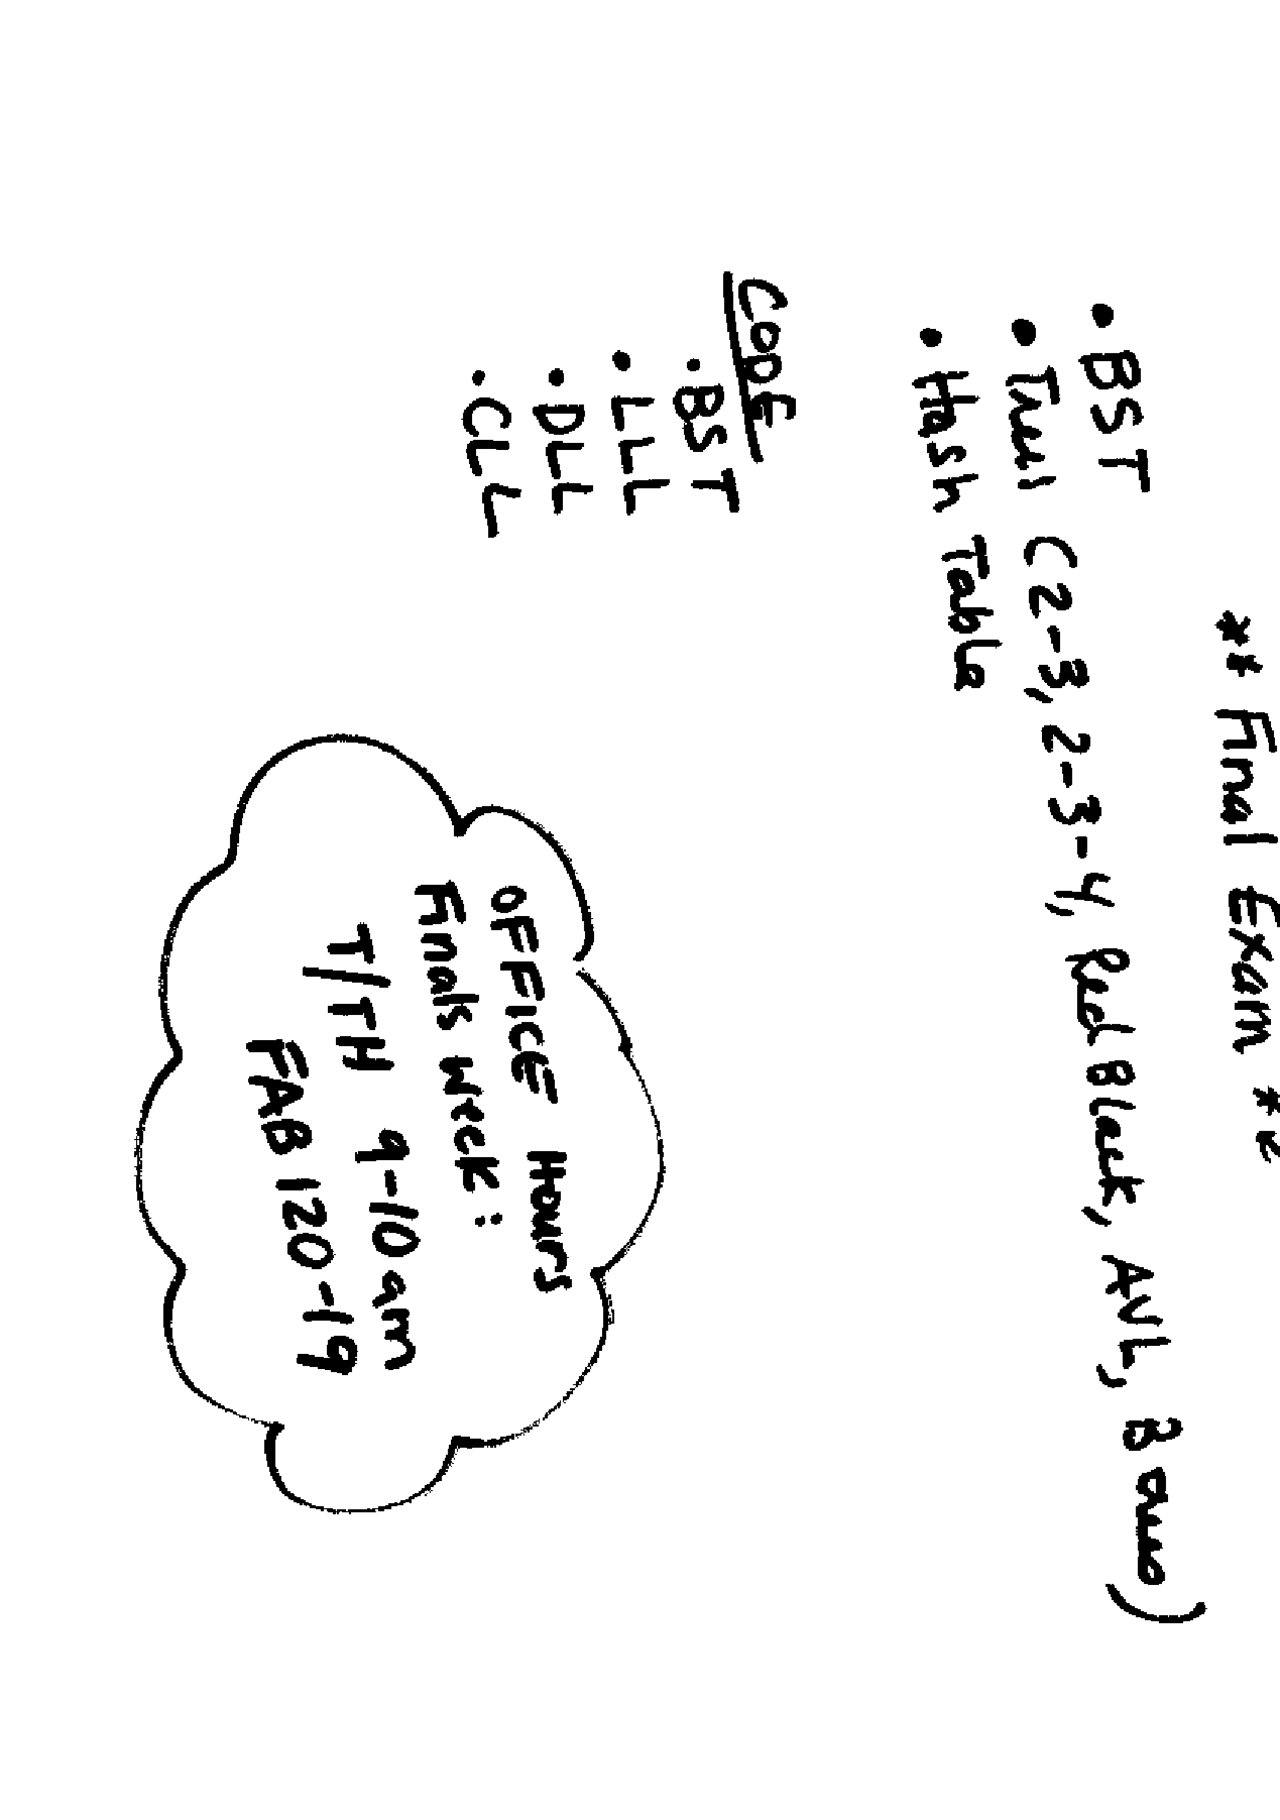 ** Final Exam **
• BST
• Trees (2-3, 2-3-4, Red Black, AVL, B trees)
• Hash Table
CODE
• BST
• LLL
• DLL
• CLL
OFFICE Hours
Finals Week:
T/TH 9-10am
FAB 120-19